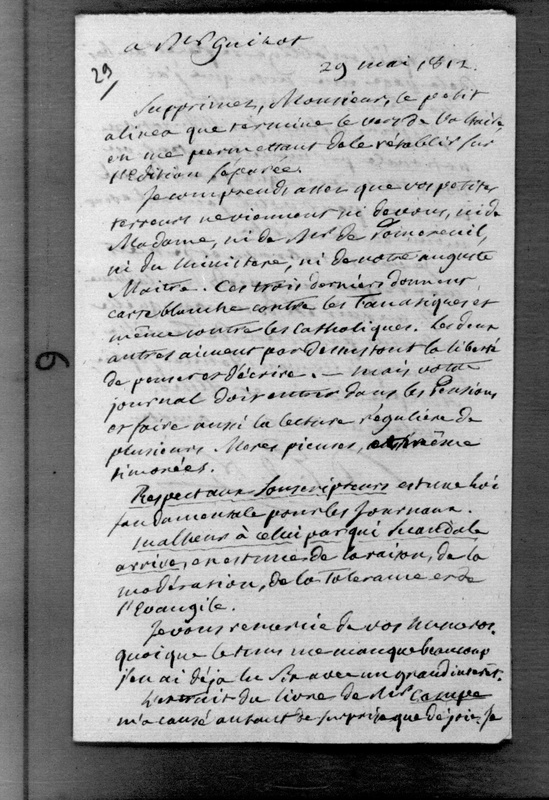 a Mr Guizot
29
29 mai 1812.
Supprimez, Monsieur, le petit
alinea que termine le vers de Voltaire,
en me permettant de le rétablir sur
l'Edition séparée.
Je comprends assez que vos petites
terreurs ne viennent ni de vous, ni de
Madame, ni de Mr de Pomereuil,
ni du ministere, ni de notre auguste
Maitre. Ces trois derniers donnent
carte blanche contre les fanatiques et
même contre les catholiques. Les deux
autres aiment par dessus tout la liberté
de penser et d'écrire. — mais votre
journal doit entrer dans les Pensions
et faire aussi la lecture régulière de
plusieurs Meres pieuses, et même
timorées.
Respect aux Souscripteurs est une loi
fondamentale pour les Journaux.
Malheur à celui par qui Scandale
arrive, en est une de la raison, de la
modération, de la Tolerance et de
l'Evangile.
Je vous remercie de vos numeros.
quoique le tems me manque beaucoup
j'en ai déja lu six avec un grand interêt.
L'extrait du livre de Mr
m'a causé autant de surprise que de joie. Je
6